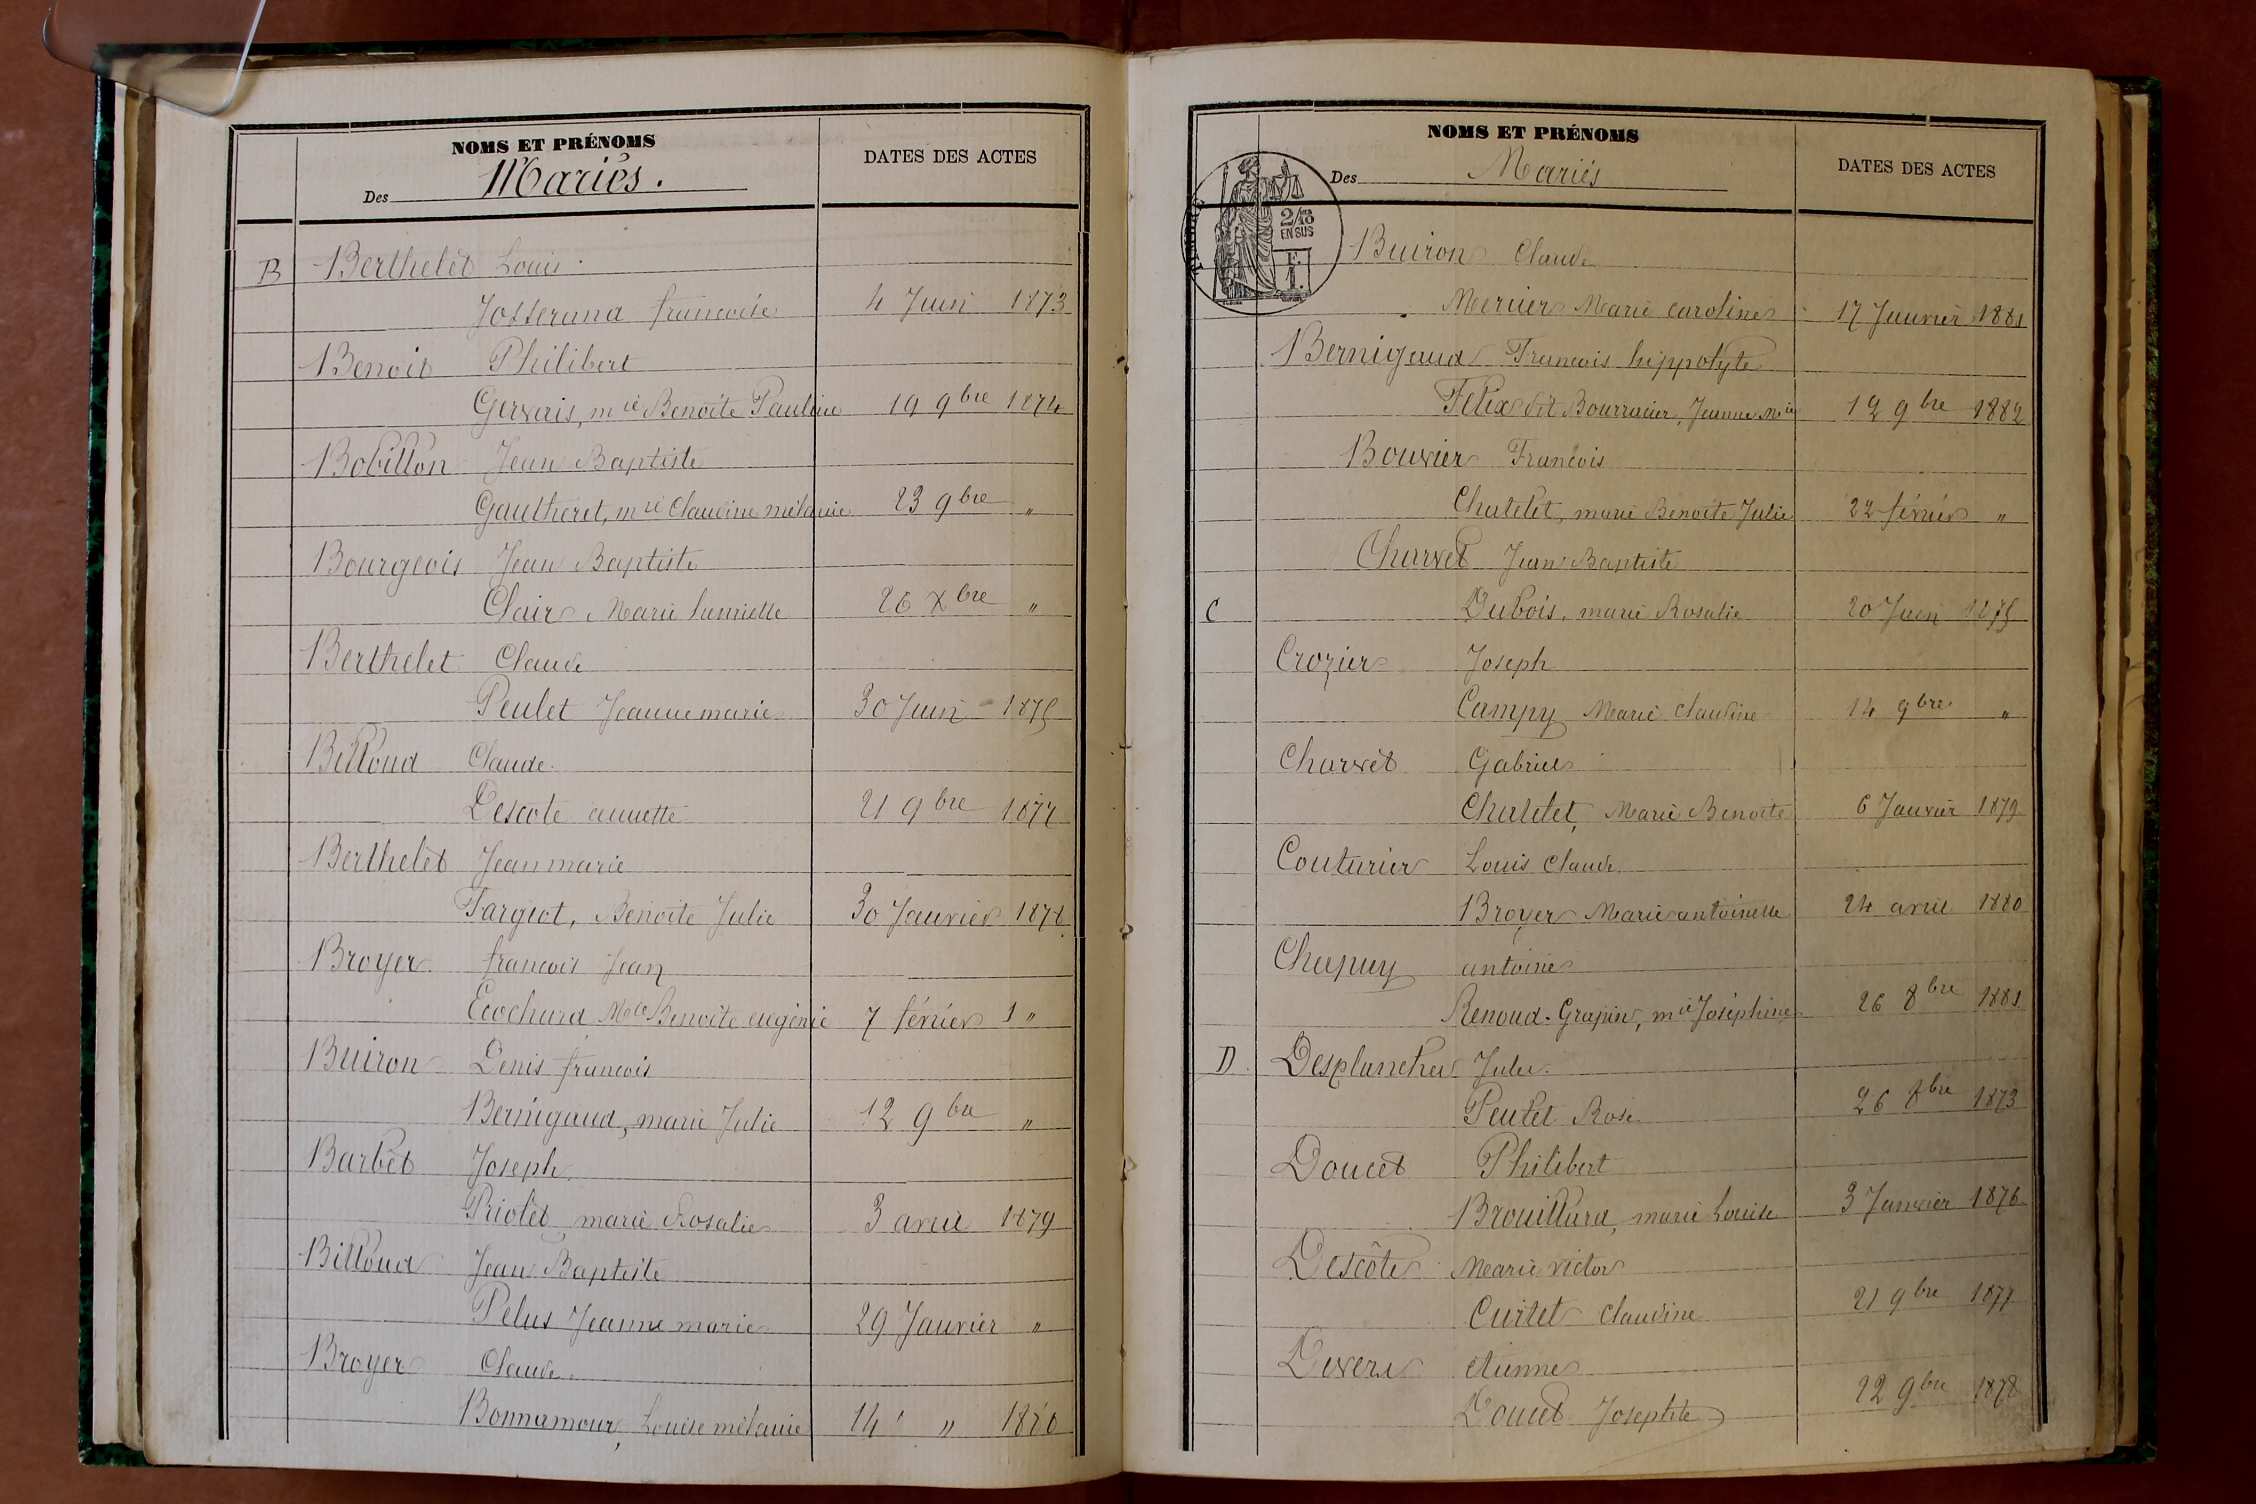 NOMS ET PRÉNOMS
Des Mariés.
DATES DES ACTES
B Berthelet Louis
Josserand françoise 4 Juin 1873
Benoit Philibert
Gervais, mie Benoîte Pauline 19 9bre 1874
Bobillon Jean Baptiste
Gautheret, mie Claudine mélanie 23 9bre "
Bourgeois Jean Baptiste
Clair Marie henriette 26 Xbre "
Berthelet Claude
Peulet Jeanne marie 30 Juin 1875
Billoud Claude.
Descote annette 21 9bre 1877
Berthelet Jean marie
Targeot, Benoite Julie 30 Janvier 1878
Broyer francois Jean
Ecochard Mie Benoite eugénie 7 février "
Buiron Denis francois
Bernigaud, marie Julie 12 9bre "
Barbet Joseph
Priolet marie Rosalie 3 avril 1879
Billoud Jean Baptiste
Pelus Jeanne marie 29 Janvier "
Broyer Claude.
Bonnamour, Louise mélanie 14 " 1880
NOMS ET PRÉNOMS
Des Mariés
DATES DES ACTES
2/10 EN SUS
Buiron Claude
Mercier Marie caroline 17 Janvier 1881
Bernigaud Francois hippolyte
Félix dit Bourracier, Jeanne Mie 12 9bre 1882
Bouvier Francois
Chatelet, marie Benoite Julie 22 février "
Charvet Jean Baptiste
C Dubois, marie Rosalie 20 Juin 1875
Crozier Joseph
Campy Marie claudine 14 9bre "
Charvet Gabriel
Chatelet, Marie Benoite 6 Janvier 1879
Couturier Louis Claude
Broyer Marie antoinette 24 avril 1880
Chapuy antoine
Renoud-Grapin, mie Joséphine 26 8bre 1881
D Desplanches Jules.
Peulet Rose 26 8bre 1873
Doucet Philibert
Brouillard, marie Louise 3 Janvier 1876
Descôte Marie victor
Curtet Claudine 21 9bre 1877
etienne
Doucet Josephte 22 9bre 1878